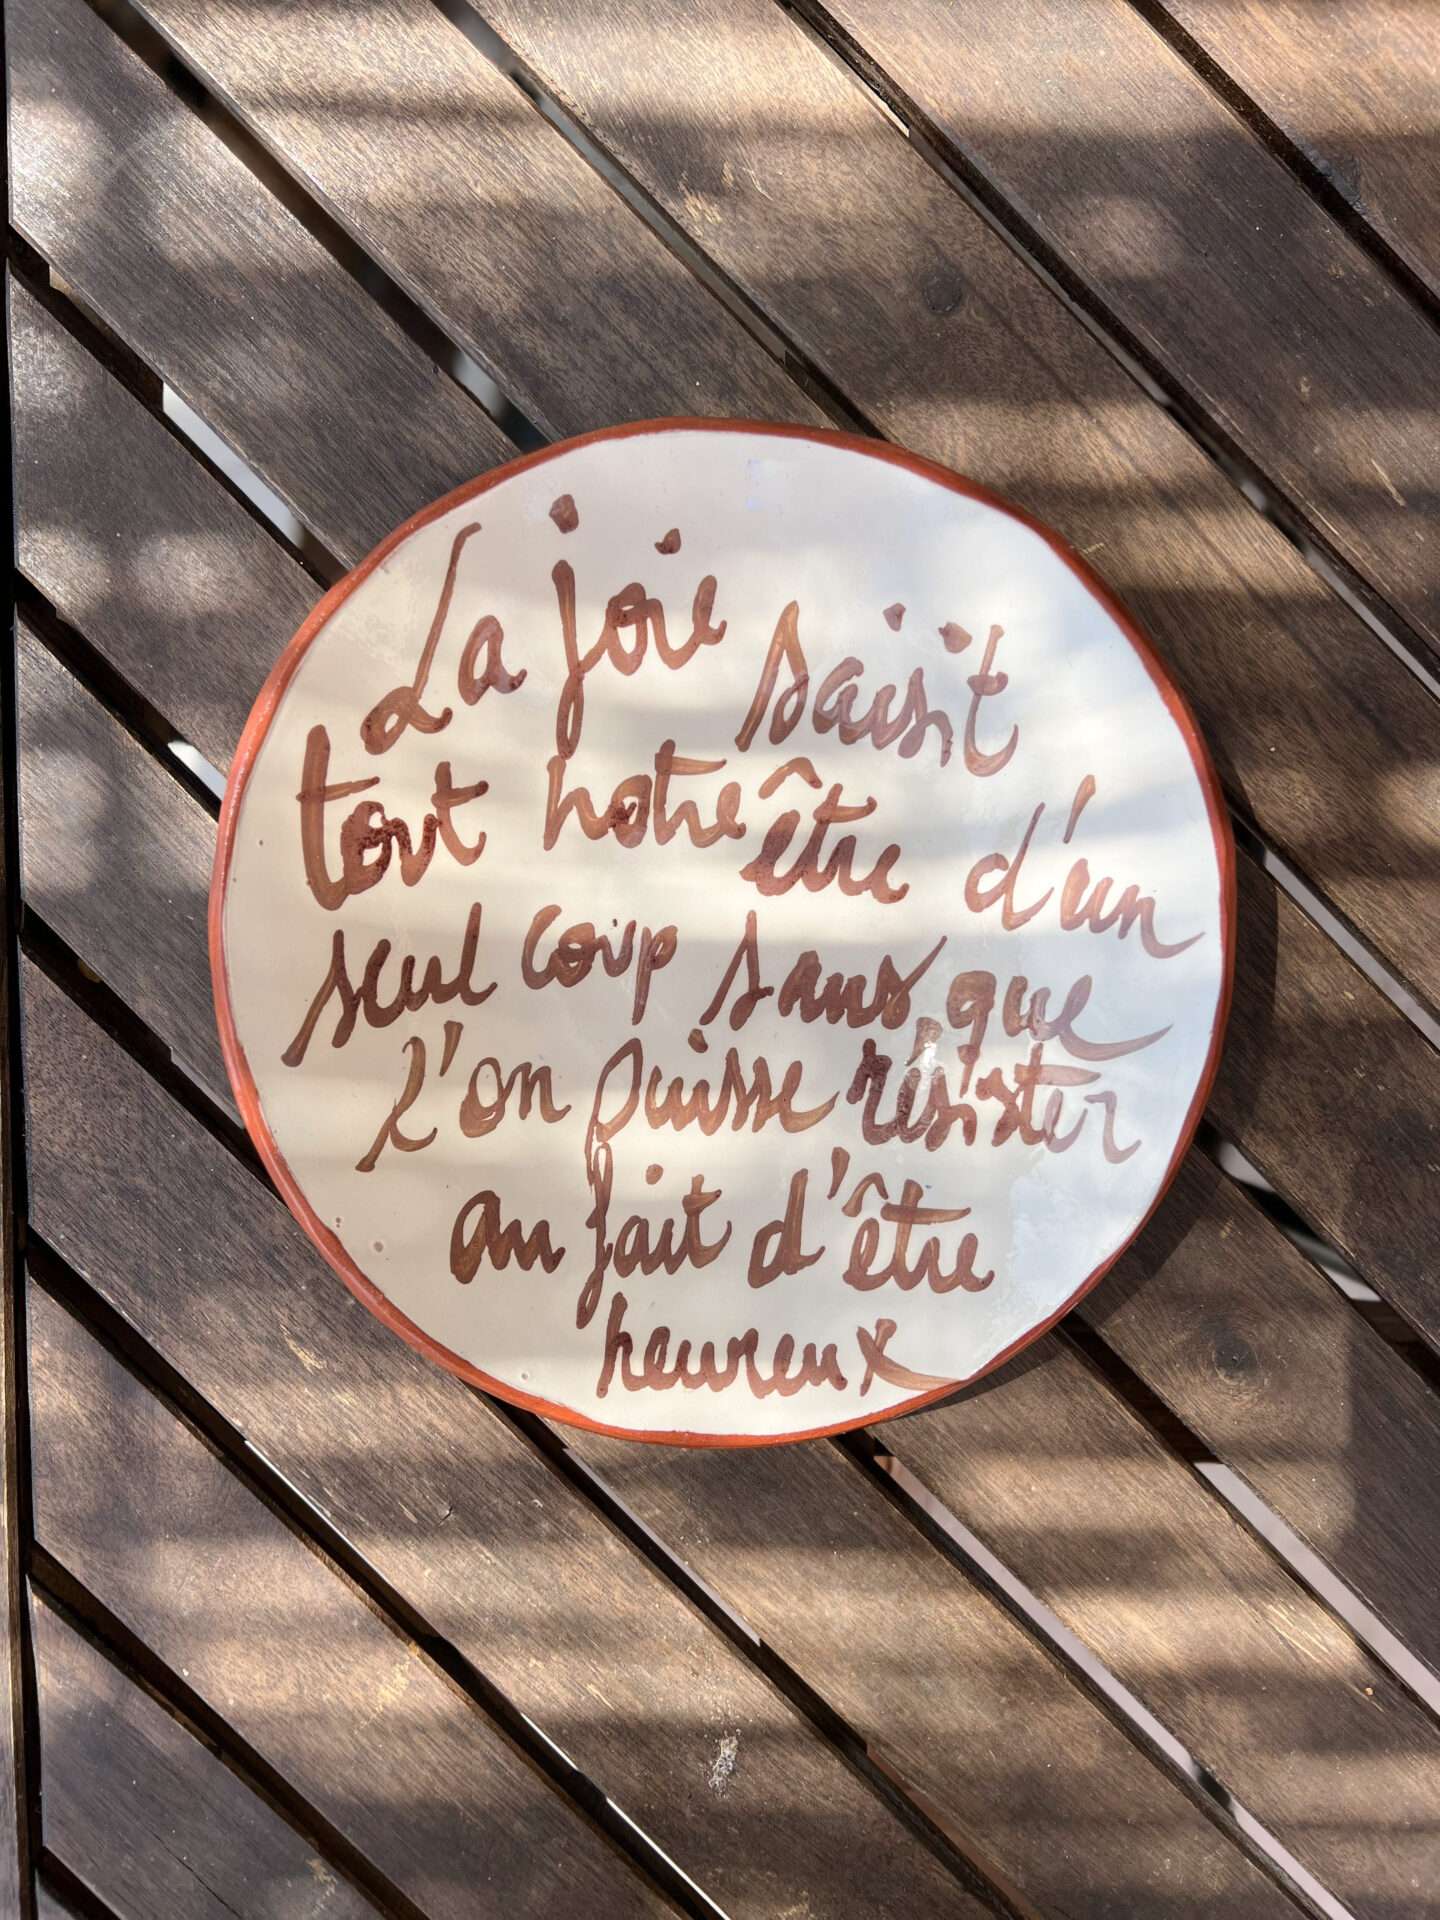 La joie saisit
tout notre être d'un
seul coup sans que
l'on puisse résister
au fait d'être
heureux